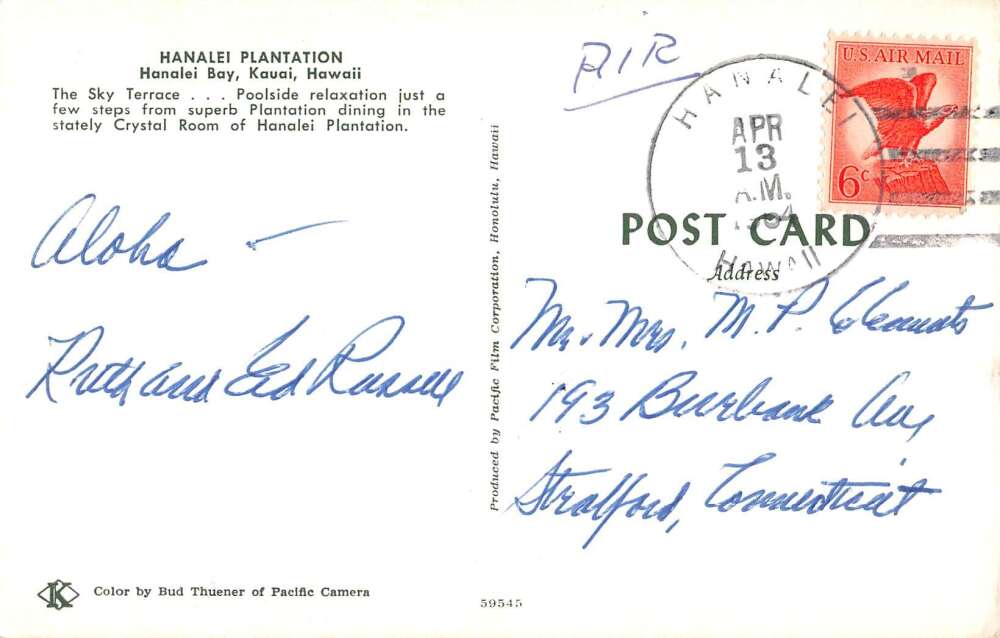 HANALEI PLANTATION
Hanalei Bay, Kauai, Hawaii
The Sky Terrace . . . Poolside relaxation just a
few steps from superb Plantation dining in the
stately Crystal Room of Hanalei Plantation.
Aloha –
Ruth and Ed Russell
Color by Bud Thuener of Pacific Camera
K
Produced by Pacific Film Corporation, Honolulu, Hawaii
59545
AIR
HANALEI
APR
13
A.M.
HAWAII
U.S. AIR MAIL
6c
POST CARD
Address
Mr. Mrs. M. P.
193 Burbank Av,
Stratford, Connecticut